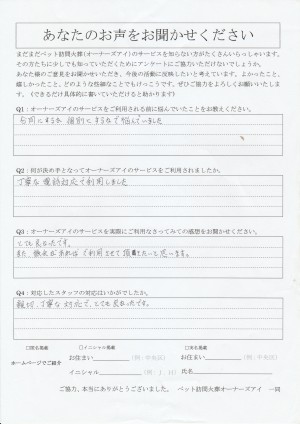 あなたのお声をお聞かせください
まだまだペット訪問火葬(オーナーズアイ)のサービスを知らない方がたくさんいらっしゃいます。
その方たちに少しでも知っていただくためにアンケートにご協力いただけないでしょうか。
あなた様のご意見をお聞かせいただき、今後の活動に反映したいと考えています。よかったこと、
嬉しかったこと、どのような些細なことでもけっこうです。ぜひご協力をよろしくお願いいたしま
す。(できるだけ具体的に書いていただけると助かります)
Q1:オーナーズアイのサービスをご利用される前に悩んでいたことをお教えください。
合同にするか 個別にするかで悩んでいました
Q2:何が決め手となってオーナーズアイのサービスをご利用されましたか。
丁寧な 電話対応で利用しました
Q3:オーナーズアイのサービスを実際にご利用なさってみての感想をお聞かせください。
とても良かったです。
また、機会が あれば ご利用させて頂きたいと思います。
Q4:対応したスタッフの対応はいかがでしたか。
親切、丁寧な 対応で、とても良かったです。
□匿名掲載 ☑イニシャル掲載 □実名掲載
ホームページでご紹介
お住まい (例:中央区) お住まい (例:中央区)
イニシャル 氏名
ご協力、本当にありがとうございました。 ペット訪問火葬オーナーズアイ 一同